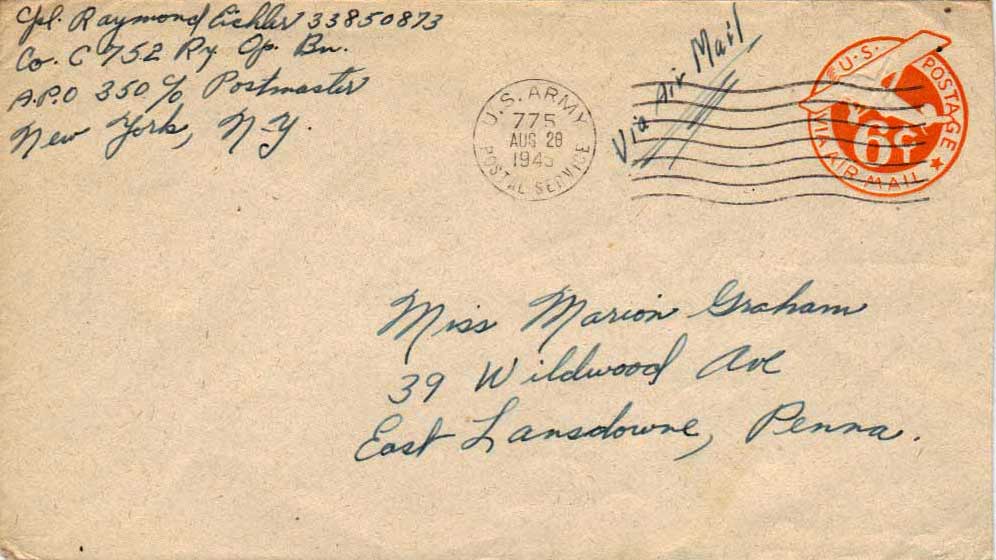 Cpl. Raymond Eichler 33850873
Co. C 752 Ry. Op. Bn.
A.P.O 350 c/o Postmaster
New York, N.Y.
Via Air Mail
U.S. ARMY
775
AUG 28
1945
POSTAL SERVICE
U.S. POSTAGE
6¢
VIA AIR MAIL
Miss Marion Graham
39 Wildwood Ave
East Lansdowne, Penna.